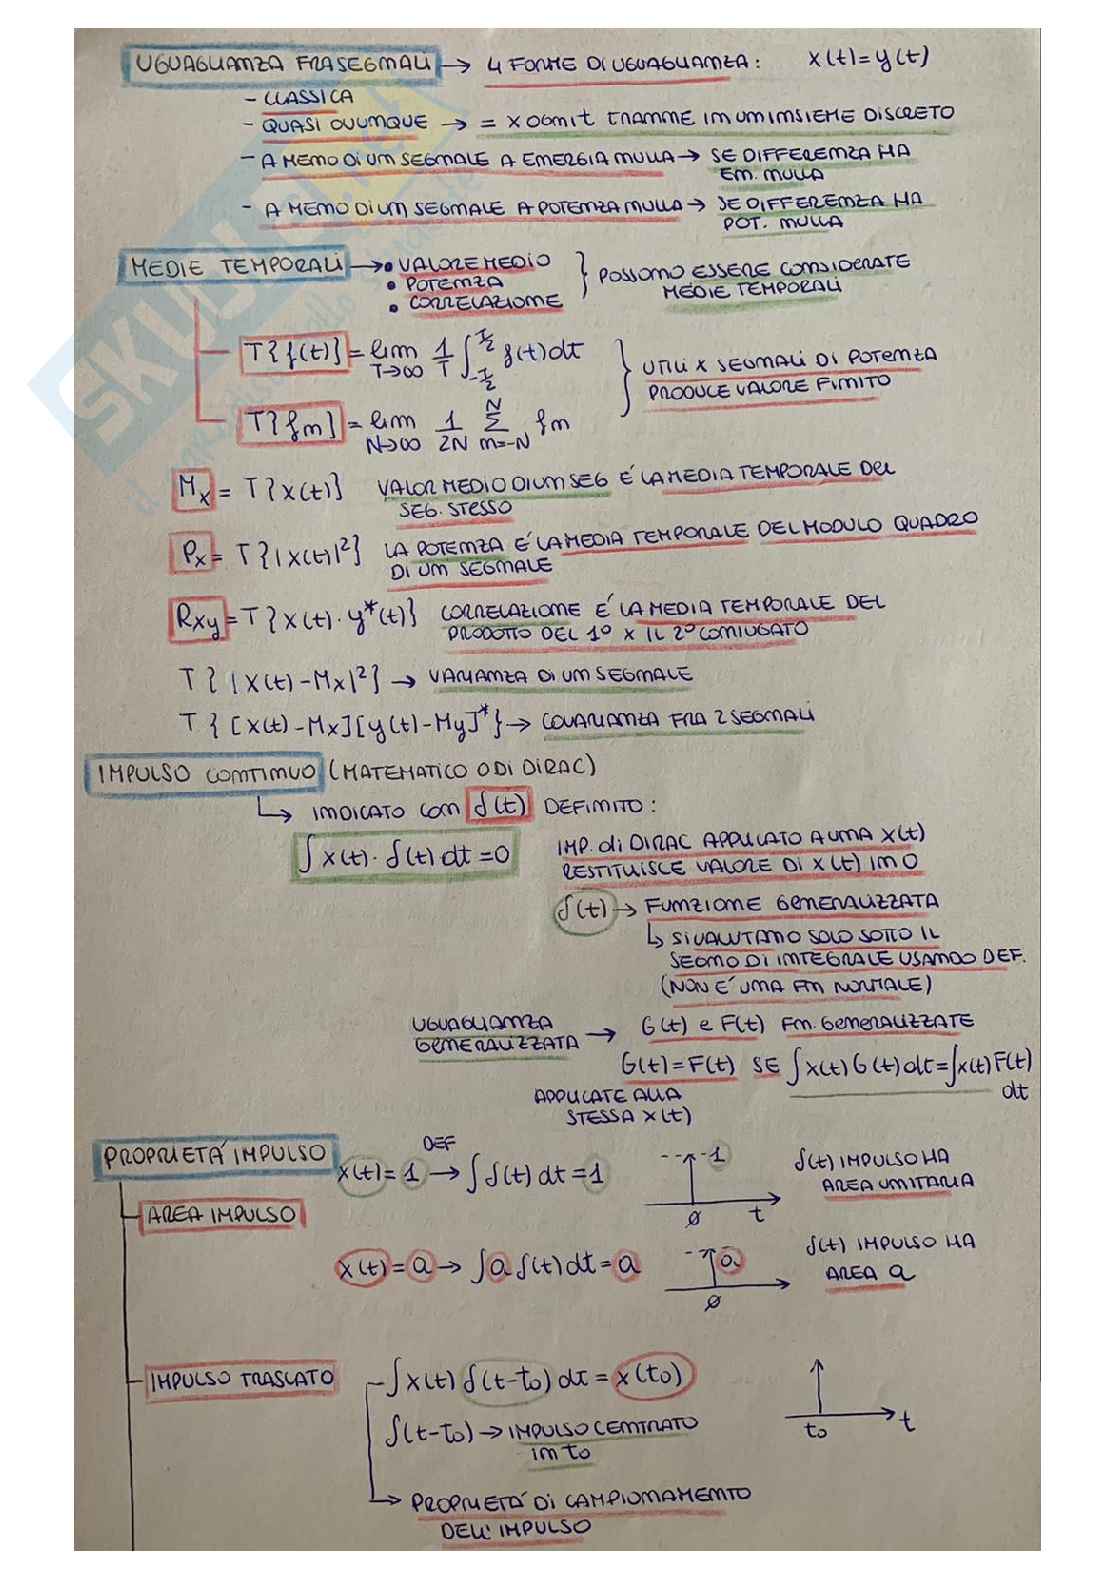 UGUAGLIANZA FRA SEGNALI → 4 FORME DI UGUAGLIANZA: x(t)=y(t)
- CLASSICA
- QUASI OVUNQUE → = x OGNI t TRANNE IN UN INSIEME DISCRETO
- A MENO DI UN SEGNALE A ENERGIA NULLA → SE DIFFERENZA HA
EN. NULLA
- A MENO DI UN SEGNALE A POTENZA NULLA → SE DIFFERENZA HA
POT. NULLA
MEDIE TEMPORALI → • VALORE MEDIO
• POTENZA
• CORRELAZIONE
} POSSONO ESSERE CONSIDERATE
MEDIE TEMPORALI
T{f(t)} = lim T→∞ 1/T ∫_{-T/2}^{T/2} f(t)dt
T{fn} = lim N→∞ 1/2N Σ_{n=-N}^{N} fn
} UTILI x SEGNALI DI POTENZA
PRODUCE VALORE FINITO
Mx = T{x(t)} VALOR MEDIO DI UN SEG E' LA MEDIA TEMPORALE DEL
SEG. STESSO
Px = T{|x(t)|²} LA POTENZA E' LA MEDIA TEMPORALE DEL MODULO QUADRO
DI UN SEGNALE
Rxy = T{x(t)·y*(t)} CORRELAZIONE E' LA MEDIA TEMPORALE DEL
PRODOTTO DEL 1° x IL 2° CONIUGATO
T{|x(t)-Mx|²} → VARIANZA DI UN SEGNALE
T{[x(t)-Mx][y(t)-My]*} → COVARIANZA FRA 2 SEGNALI
IMPULSO CONTINUO (MATEMATICO O DI DIRAC)
↳ INDICATO CON δ(t) DEFINITO:
∫x(t)·δ(t) dt = 0
IMP. di DIRAC APPLICATO A UNA x(t)
RESTITUISCE VALORE DI x(t) IN 0
δ(t) → FUNZIONE GENERALIZZATA
↳ SI VALUTANO SOLO SOTTO IL
SEGNO DI INTEGRALE USANDO DEF.
(NON E' UNA FN NORMALE)
UGUAGLIANZA
GENERALIZZATA → G(t) e F(t) FN. GENERALIZZATE
G(t)=F(t) SE ∫x(t)G(t)dt=∫x(t)F(t)
dt
APPLICATE ALLA
STESSA x(t)
PROPRIETA' IMPULSO
DEF
x(t)=1 → ∫δ(t)dt=1
1
ø t
δ(t) IMPULSO HA
AREA UNITARIA
AREA IMPULSO
x(t)=a → ∫a δ(t)dt=a
a
ø
δ(t) IMPULSO HA
AREA a
IMPULSO TRASLATO
- ∫x(t) δ(t-t₀) dt = x(t₀)
t₀ t
δ(t-t₀) → IMPULSO CENTRATO
in t₀
→ PROPRIETA' DI CAMPIONAMENTO
DELL'IMPULSO